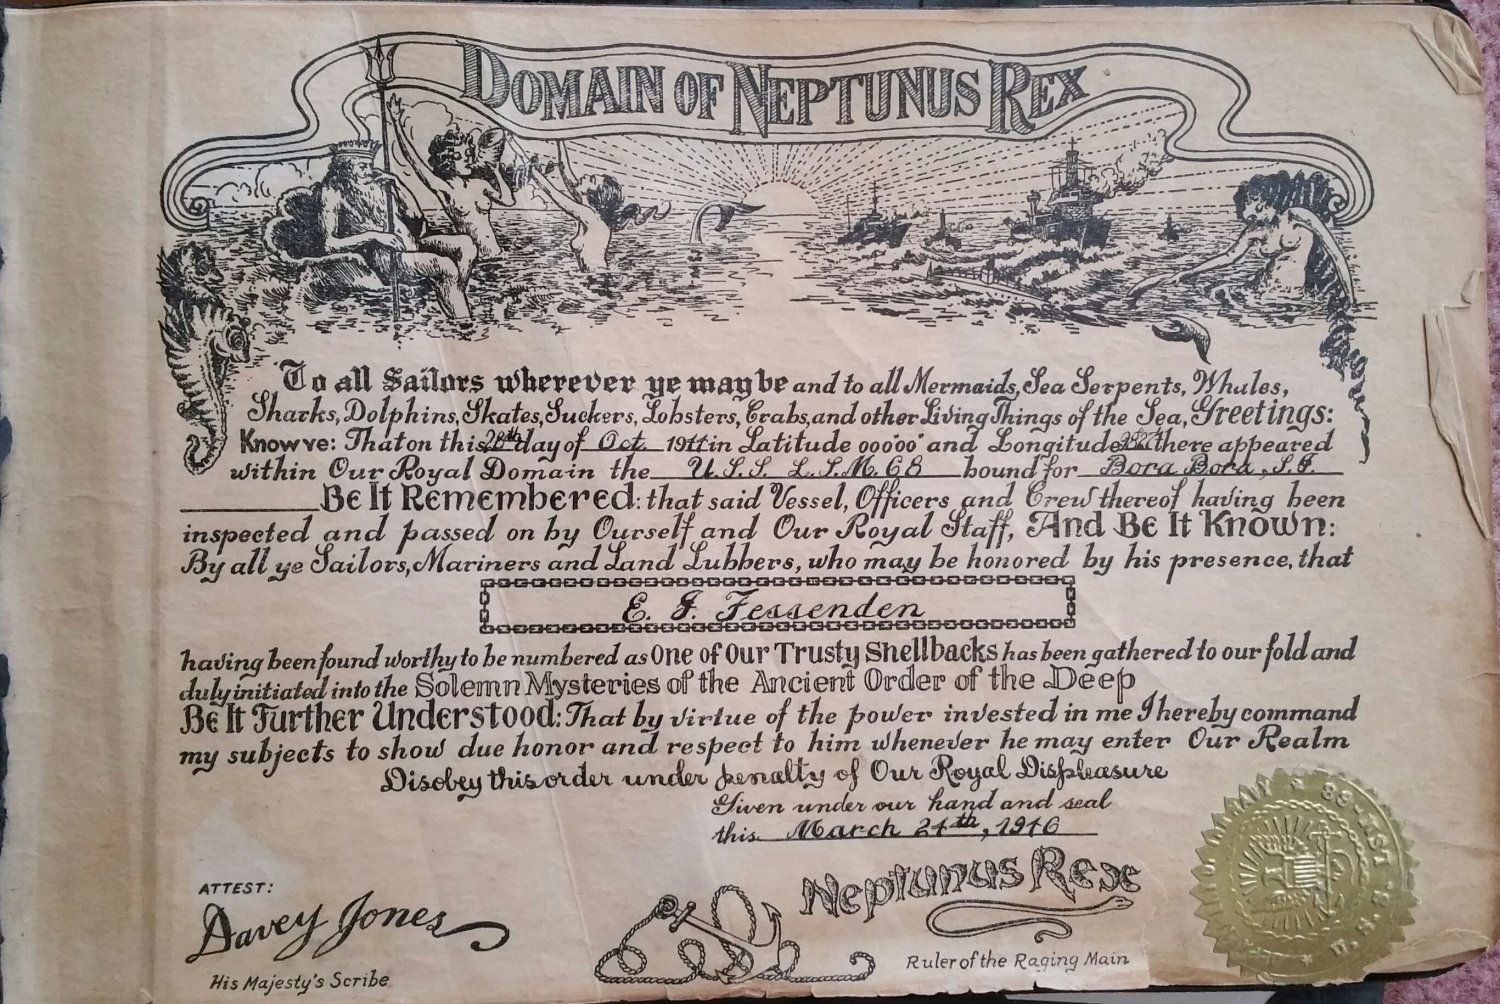 DOMAIN OF NEPTUNUS REX
To all Sailors wherever ye may be and to all Mermaids, Sea Serpents, Whales,
Sharks, Dolphins, Skates, Suckers, Lobsters, Crabs, and other Living Things of the Sea, Greetings:
Know ye: That on this 28th day of Oct. 1944 in Latitude 00000 and Longitude there appeared
within Our Royal Domain the U.S.S. L.S.M. 68 bound for Bora Bora, S.I.
Be It Remembered: that said Vessel, Officers and Crew thereof having been
inspected and passed on by Ourself and Our Royal Staff, And Be It Known:
By all ye Sailors, Mariners and Land Lubbers, who may be honored by his presence, that
E. J. Fessenden
having been found worthy to be numbered as One of Our Trusty Shellbacks has been gathered to our fold and
duly initiated into the Solemn Mysteries of the Ancient Order of the Deep
Be It Further Understood: That by virtue of the power invested in me I hereby command
my subjects to show due honor and respect to him whenever he may enter Our Realm
Disobey this order under penalty of Our Royal Displeasure
Given under our hand and seal
this March 24th, 1946
ATTEST:
Davey Jones
His Majesty's Scribe
Neptunus Rex
Ruler of the Raging Main
U.S.S. LSM-68